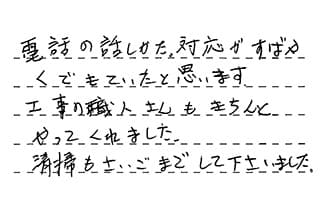 電話の話しかた、対応がすばや
くでもていたと思います
工事の職人さんもきちんと
やってくれました。
清掃もさいごまでして下さいました。